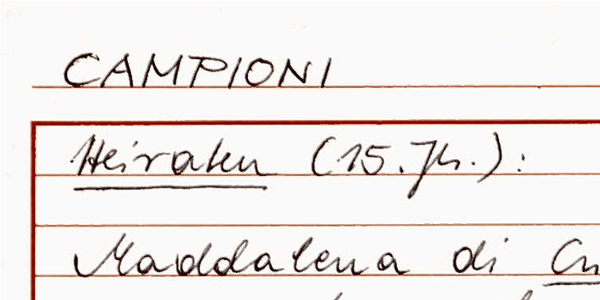 CAMPIONI
Heiraten (15. Jh.):
Maddalena di